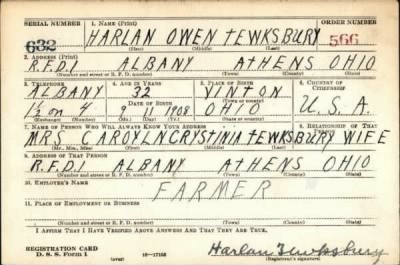 SERIAL NUMBER 1. NAME (Print) ORDER NUMBER
632 HARLAN OWEN TEWKSBURY 566
(First) (Middle) (Last)
2. ADDRESS (Print)
R.F.D.1 ALBANY ATHENS OHIO
(Number and street or R. F. D. number) (Town) (County) (State)
3. TELEPHONE 4. AGE IN YEARS 5. PLACE OF BIRTH 6. COUNTRY OF CITIZENSHIP
ALBANY 32 VINTON
DATE OF BIRTH (Town or county)
1½ on 4 9 11 1908 OHIO U.S.A.
(Exchange) (Mo.) (Day) (Yr.) (State or country)
7. NAME OF PERSON WHO WILL ALWAYS KNOW YOUR ADDRESS 8. RELATIONSHIP OF THAT
MRS CAROYLN CRYSTINIA TEWKSBURY WIFE
(Mr., Mrs., Miss) (First) (Middle) (Last)
9. ADDRESS OF THAT PERSON
R.F.D.1 ALBANY ATHENS OHIO
(Number and street or R. F. D. number) (Town) (County) (State)
10. EMPLOYER'S NAME
FARMER
11. PLACE OF EMPLOYMENT OR BUSINESS
(Number and street or R. F. D. number) (Town) (County) (State)
I AFFIRM THAT I HAVE VERIFIED ABOVE ANSWERS AND THAT THEY ARE TRUE.
REGISTRATION CARD
D. S. S. Form 1 (over) 16—17105 Harlan Tewksbury
(Registrant's signature)